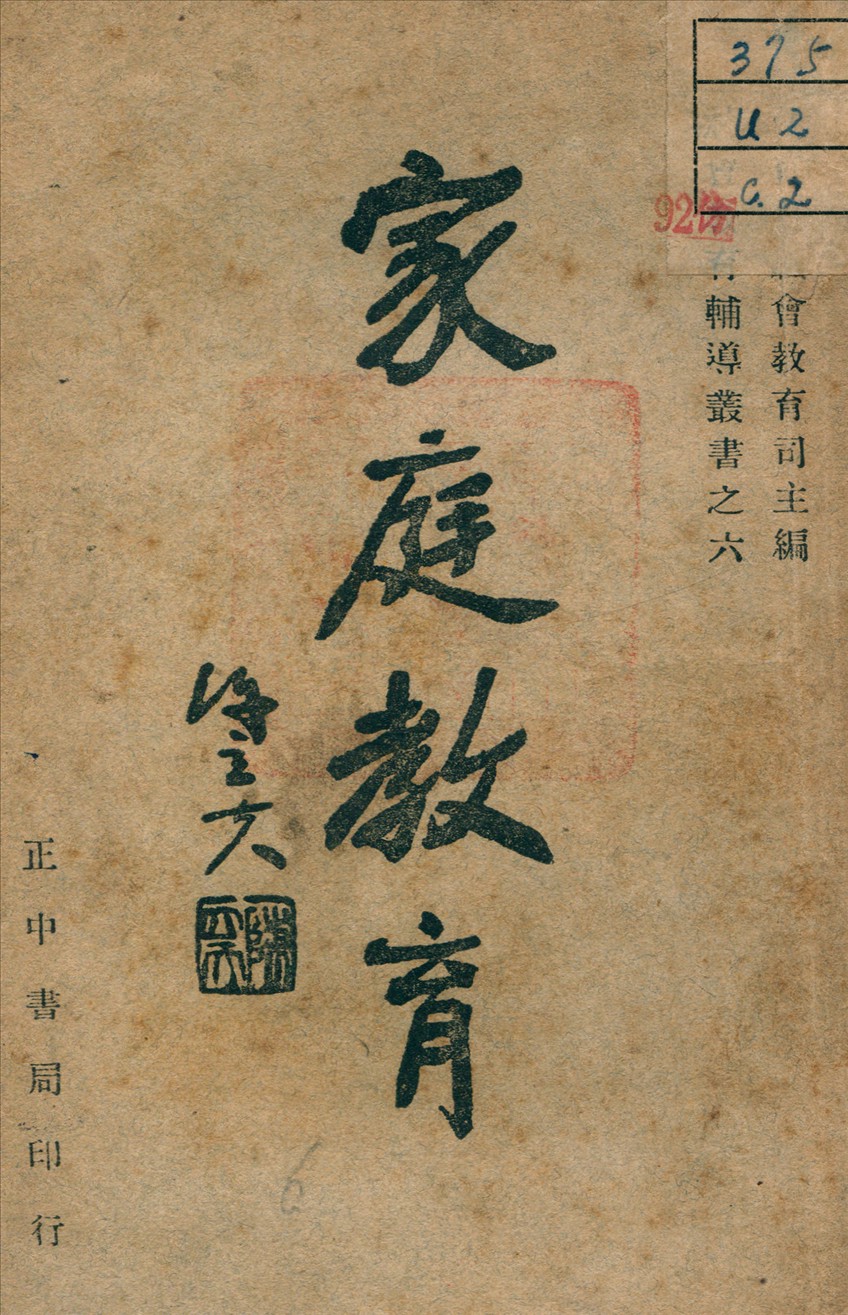 375
U2
c.2
92
會教育司主編
育輔導叢書之六
家庭教育
陳立夫
正中書局印行
6